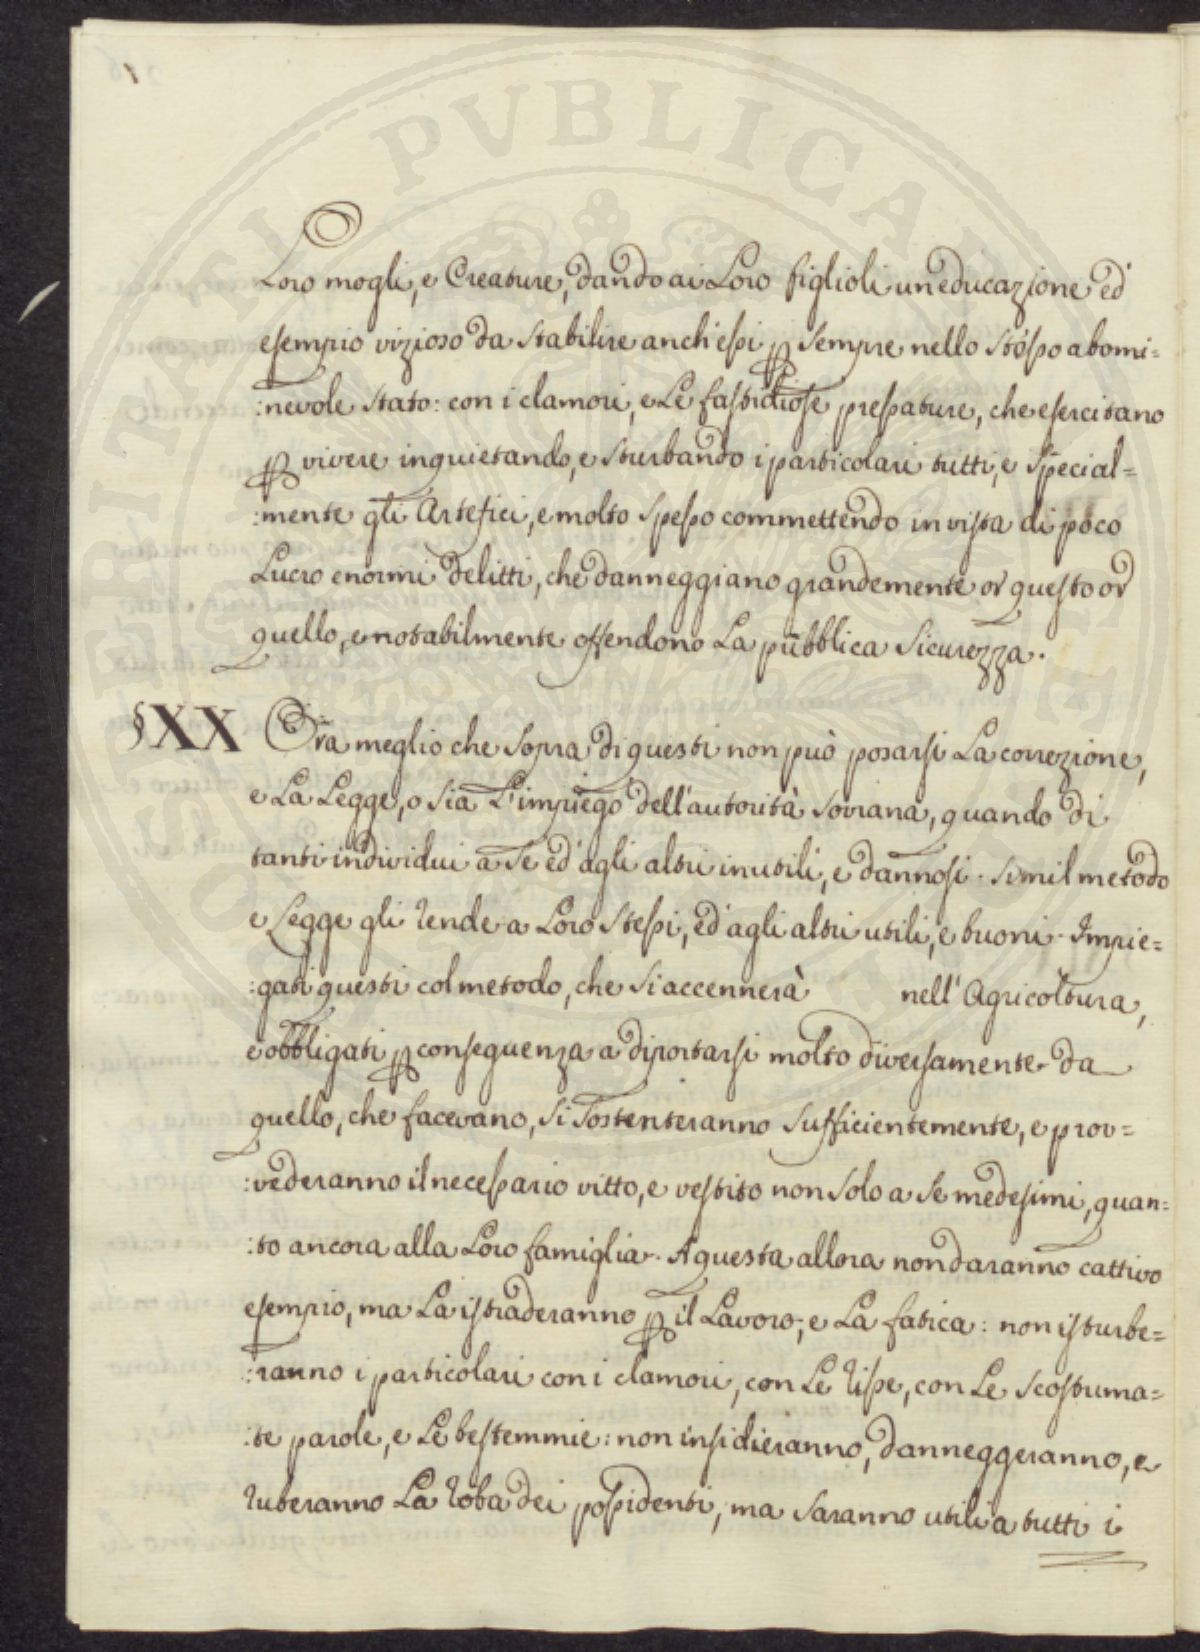 Loro mogli, e Creature, dando ai Loro figlioli un educazione ed
esempio vizioso da stabilire anch'essi p sempre nello stesso abomi=
:nevole stato: con i clamori, e Le fastidiose pressature, che esercitano
p vivere inquietando, e sturbando i particolari tutti, e special=
:mente gli Artefici, e molto spesso commettendo in vista di poco
Lucro enormi delitti, che danneggiano grandemente or questo or
quello, e notabilmente offendono La pubblica Sicurezza.
§XX Ora meglio che sopra di questi non può posarsi La correzione,
e La Legge, o sia L'impiego dell'autorità sovrana, quando di
tanti individui a se ed agli altri inutili, e dannosi. simil metodo
e Legge gli rende a Loro stessi, ed agli altri utili, e buoni. Impie=
:gati questi col metodo, che si accennerà nell'Agricoltura,
e obbligati p conseguenza a diportarsi molto diversamente da
quello, che facevano, si sostenteranno sufficientemente, e prov=
:vederanno il necessario vitto, e vestito non solo a se medesimi, quan=
:to ancora alla Loro famiglia. A questa allora non daranno cattivo
esempio, ma La istraderanno p il Lavoro, e La fatica: non isturbe=
:ranno i particolari con i clamori, con Le risse, con Le scostuma=
:te parole, e Le bestemmie: non insidieranno, danneggeranno, e
ruberanno La roba dei possidenti, ma saranno utili a tutti i